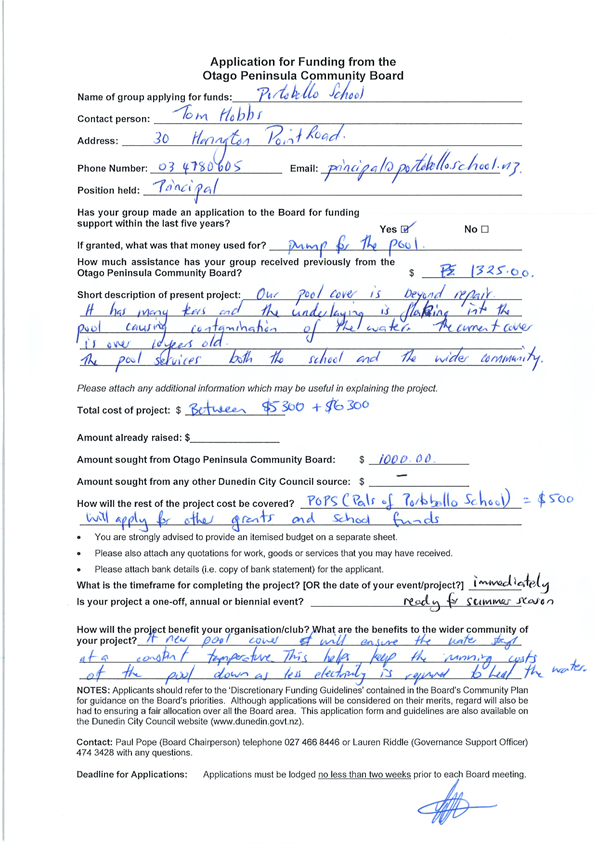 Application for Funding from the
Otago Peninsula Community Board
Name of group applying for funds: Portobello School
Contact person: Tom Hobbs
Address: 30 Harington Point Road.
Phone Number: 03 4780605 Email: principal@portobello.school.nz
Position held: Principal
Has your group made an application to the Board for funding
support within the last five years? Yes ☑ No ☐
If granted, what was that money used for? Pump for the pool.
How much assistance has your group received previously from the
Otago Peninsula Community Board? $ 1325.00.
Short description of present project: Our pool cover is beyond repair.
It has many tears and the underlaying is flaking into the
pool causing contamination of the water. The current cover
is over 10 years old.
The pool services both the school and the wider community.
Please attach any additional information which may be useful in explaining the project.
Total cost of project: $ Between $5300 + $6300
Amount already raised: $
Amount sought from Otago Peninsula Community Board: $ 1000.00.
Amount sought from any other Dunedin City Council source: $ –
How will the rest of the project cost be covered? POPS (Pals of Portobello School) = $500
will apply for other grants and school funds
• You are strongly advised to provide an itemised budget on a separate sheet.
• Please also attach any quotations for work, goods or services that you may have received.
• Please attach bank details (i.e. copy of bank statement) for the applicant.
What is the timeframe for completing the project? [OR the date of your event/project?] immediately
Is your project a one-off, annual or biennial event? ready for summer season
How will the project benefit your organisation/club? What are the benefits to the wider community of
your project? A new pool cover will ensure the water stays
at a constant temperature. This helps keep the running costs
of the pool down as less electricity is required to heat the water.
NOTES: Applicants should refer to the 'Discretionary Funding Guidelines' contained in the Board's Community Plan
for guidance on the Board's priorities. Although applications will be considered on their merits, regard will also be
had to ensuring a fair allocation over all the Board area. This application form and guidelines are also available on
the Dunedin City Council website (www.dunedin.govt.nz).
Contact: Paul Pope (Board Chairperson) telephone 027 466 8446 or Lauren Riddle (Governance Support Officer)
474 3428 with any questions.
Deadline for Applications: Applications must be lodged no less than two weeks prior to each Board meeting.